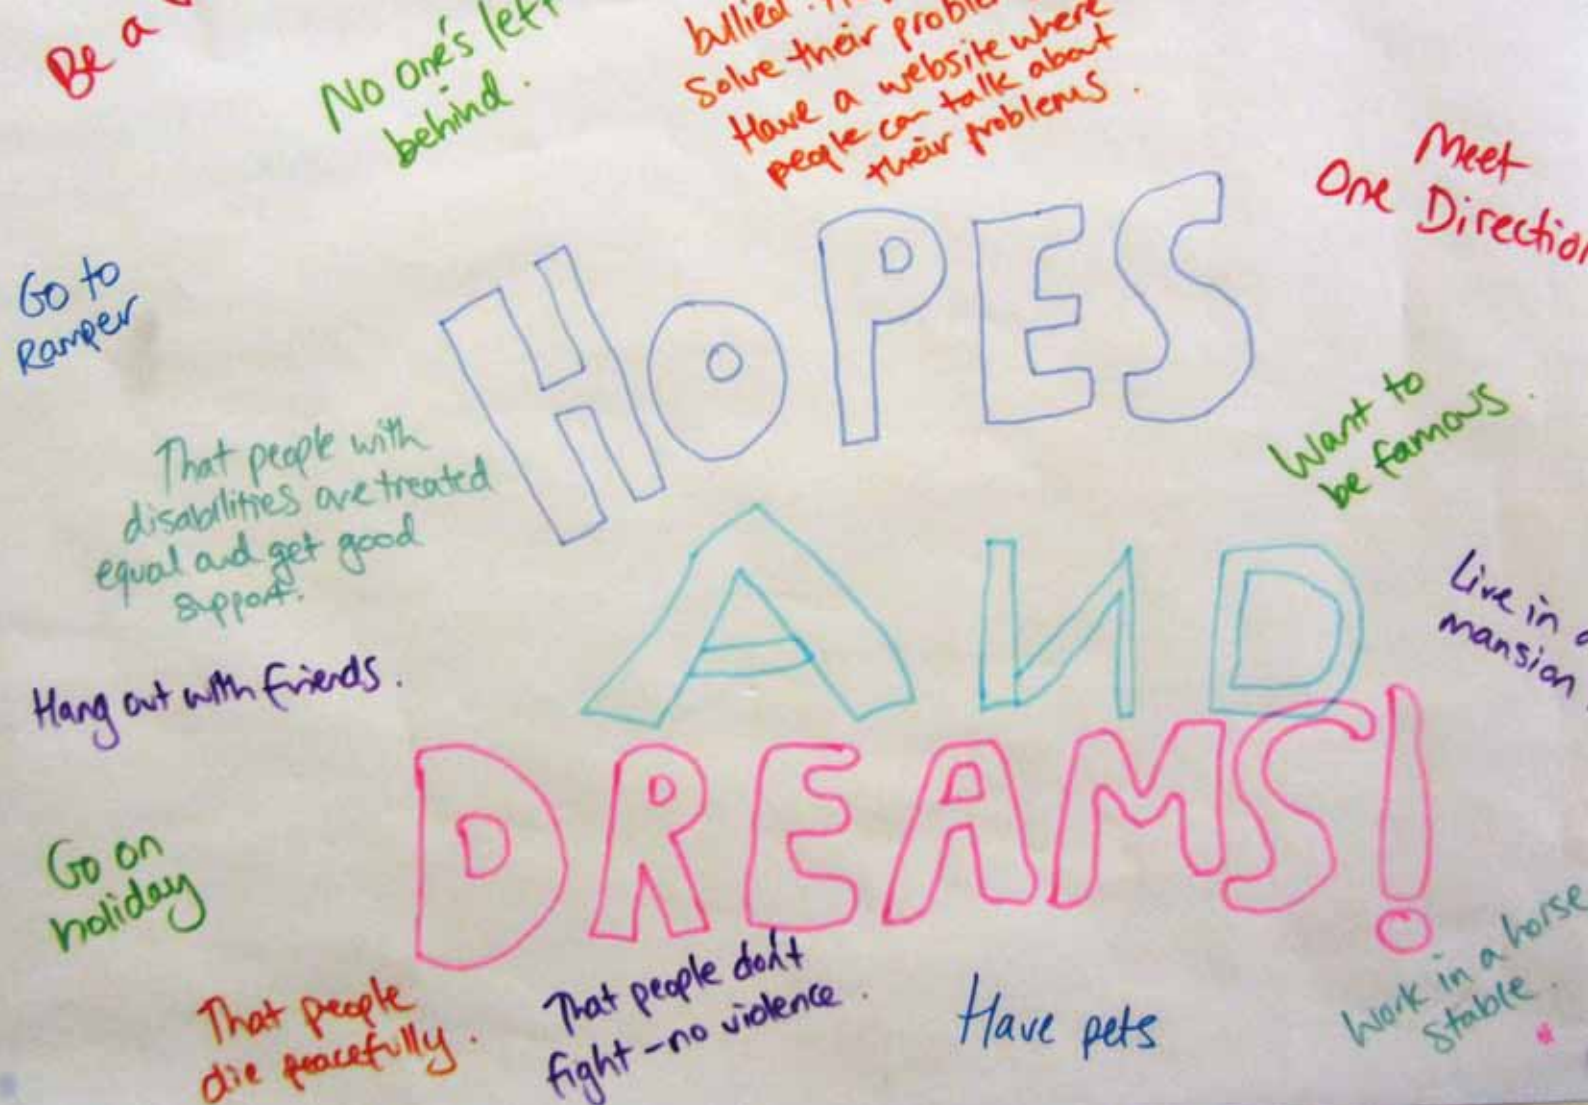 Be a
No one's left
behind.
bullied.
Solve their problems
Have a website where
people can talk about
their problems.
Meet
One Direction
Go to
Ramper
HOPES
Want to
be famous.
That people with
disabilities are treated
equal and get good
support.
AND
Live in a
mansion
Hang out with friends.
DREAMS!
Go on
holiday
That people
die peacefully.
That people don't
fight - no violence.
Have pets
Work in a horse
stable.